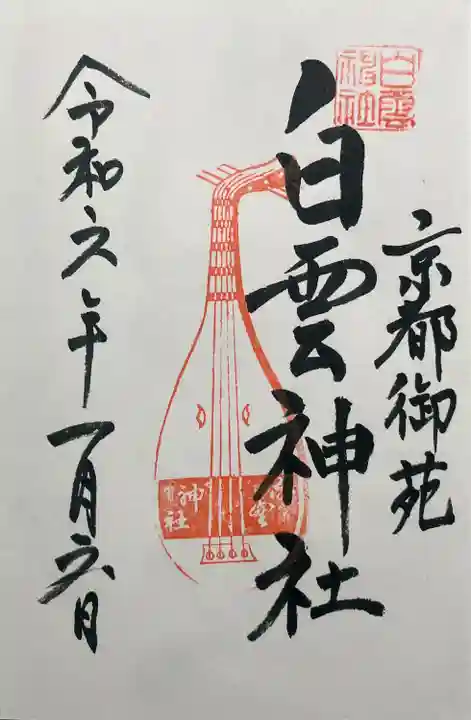 京都御苑
白雲神社
白雲
神社
令和六年一月六日
神社